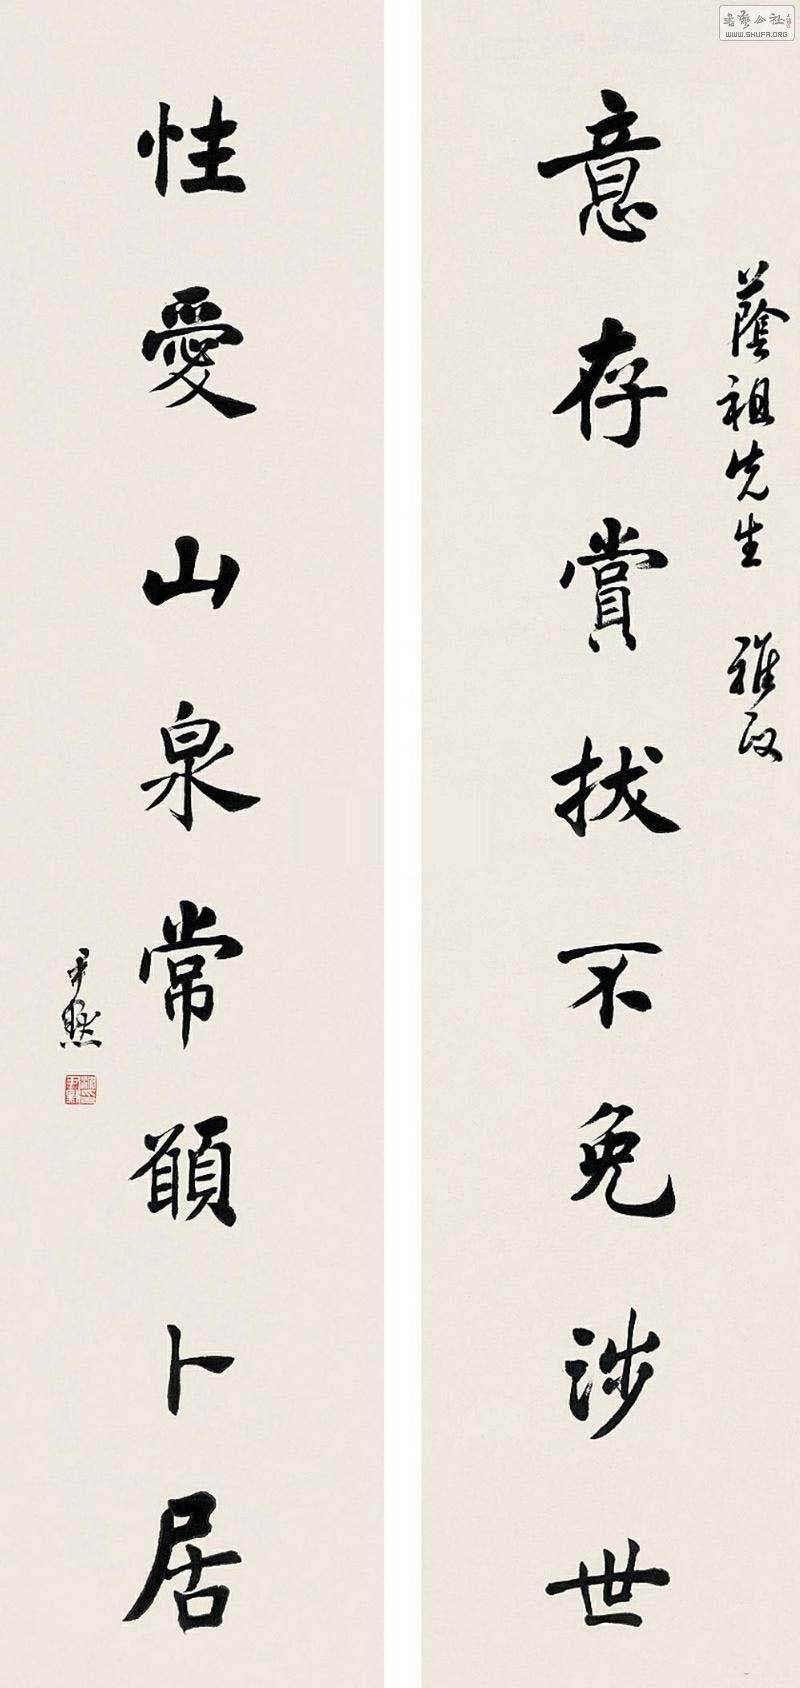 蔭祖先生 雅政
意存賞拔不免涉世
性愛山泉常願卜居
尹默
書藝公社
WWW.SHUFA.ORG